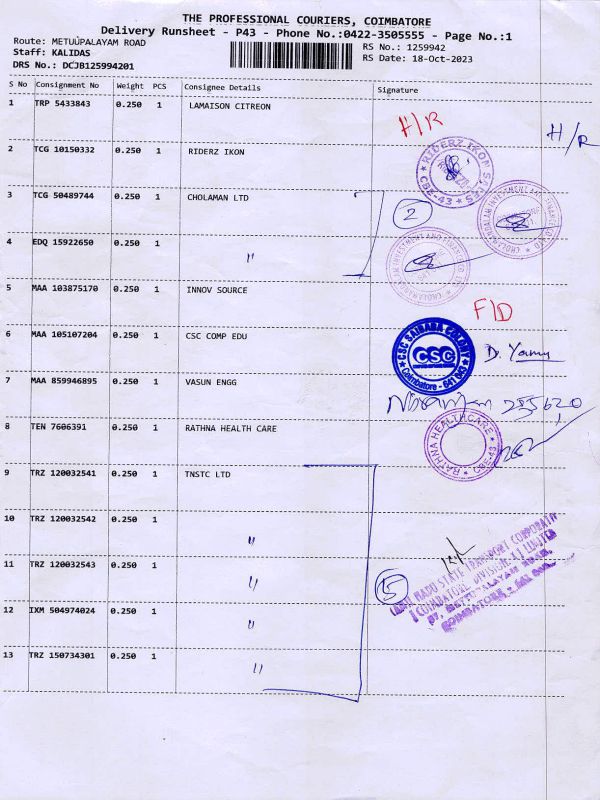 THE PROFESSIONAL COURIERS, COIMBATORE
Delivery Runsheet - P43 - Phone No.:0422-3505555 - Page No.:1
Route: METUUPALAYAM ROAD RS No.: 1259942
Staff: KALIDAS RS Date: 18-Oct-2023
DRS No.: DCJB125994201
S No Consignment No Weight PCS Consignee Details Signature
1 TRP 5433843 0.250 1 LAMAISON CITREON H/R H/R
2 TCG 10150332 0.250 1 RIDERZ IKON
RIDERZ IKON
CBE-43
3 TCG 50489744 0.250 1 CHOLAMAN LTD 2
4 EDQ 15922650 0.250 1 〃
5 MAA 103875170 0.250 1 INNOV SOURCE F/D
6 MAA 105107204 0.250 1 CSC COMP EDU
CSC SAIBABA COLONY
CSC
Coimbatore - 641 043
7 MAA 859946895 0.250 1 VASUN ENGG
8 TEN 7606391 0.250 1 RATHNA HEALTH CARE
RATHNA HEALTHCARE
CBE-43
9 TRZ 120032541 0.250 1 TNSTC LTD
10 TRZ 120032542 0.250 1 〃
11 TRZ 120032543 0.250 1 〃 5
TAMIL NADU STATE TRANSPORT CORPORATION
(COIMBATORE DIVISION-I) LIMITED
12 IXM 504974024 0.250 1 〃
13 TRZ 150734301 0.250 1 〃